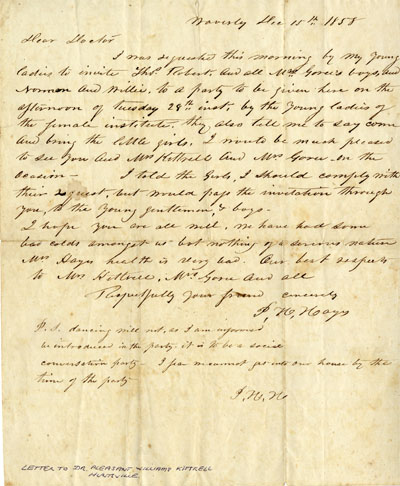 Waverly Dec 15th 1858
Dear Doctor
I was requested this morning by my Young
Ladies to invite Thos Robert, and all Mrs Gores boys, and
Norman and Willie, to a party to be given here on the
afternoon of tuesday 28th inst, by the Young ladies of
the female institute, they also tell me to say come
and bring the little girls, I would be much pleased
to see you and Mrs Kittrell and Mrs Gore on the
ocasion - I told the Girls, I should comply with
their request, but would pass the invitation through
You, to the Young gentlemen, & boys -
I hope you are all well, we have had some
bad colds amongst us but nothing of a serious nature
Mrs Hays health is very bad. Our best respects
to Mrs Kittrell, Mrs Gore and all
Respectfully Your friend
P, H, Hays
P. S. dancing will not, as I am informed
be introduced in the party. it is to be a social
conversation party - I fear we cannot get into our house by the
time of the party
P. H. H
LETTER TO DR. PLEASANT WILLIAMS KITTRELL
HUNTSVILLE